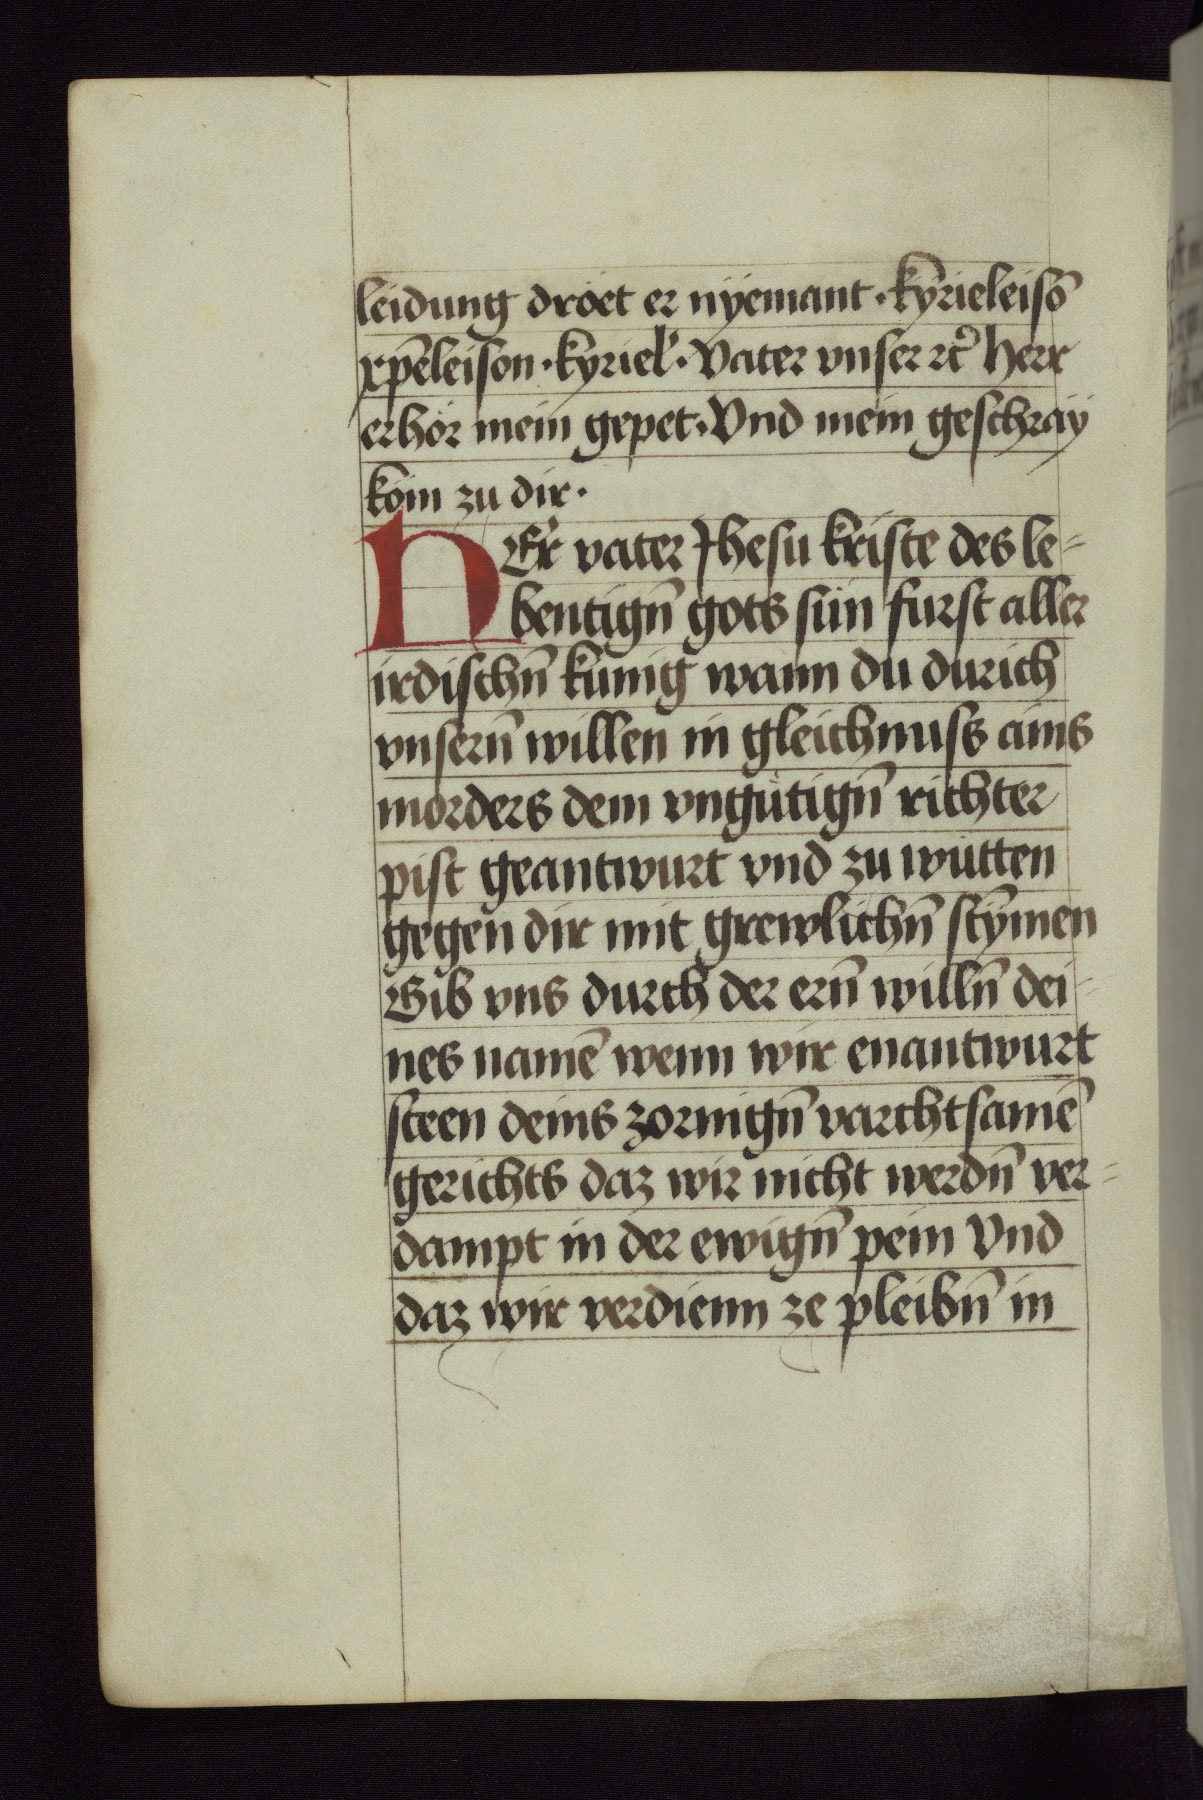 leidung dröet er nÿemant · kÿrieleisō
xp̄eleison · kÿriel̛ · Vater vnser rc̉ Herr
erhör mein gepet · Vnd mein geschraÿ
köm zu dir ·
HEr̛ vater Jhesu kriste des le=
bentign̄ gots sün furst aller
irdischn̄ künig wann du durich
vnsern̄ willen in gleichnuss ains
morders dem vngütign̄ richter
pist geantwurt vnd zu wütten
gegen dir mit grewlichn̄ stÿmen
Gib vns durch der ern̄ willn̄ dei=
nes namē wenn wir enantwurt
steen deins zornign̄ varchtsamē
gerichts daz wir nicht werdn̄ ver=
dampt in der ewign̄ pein Vnd
daz wir verdienn ze pleibn̄ in